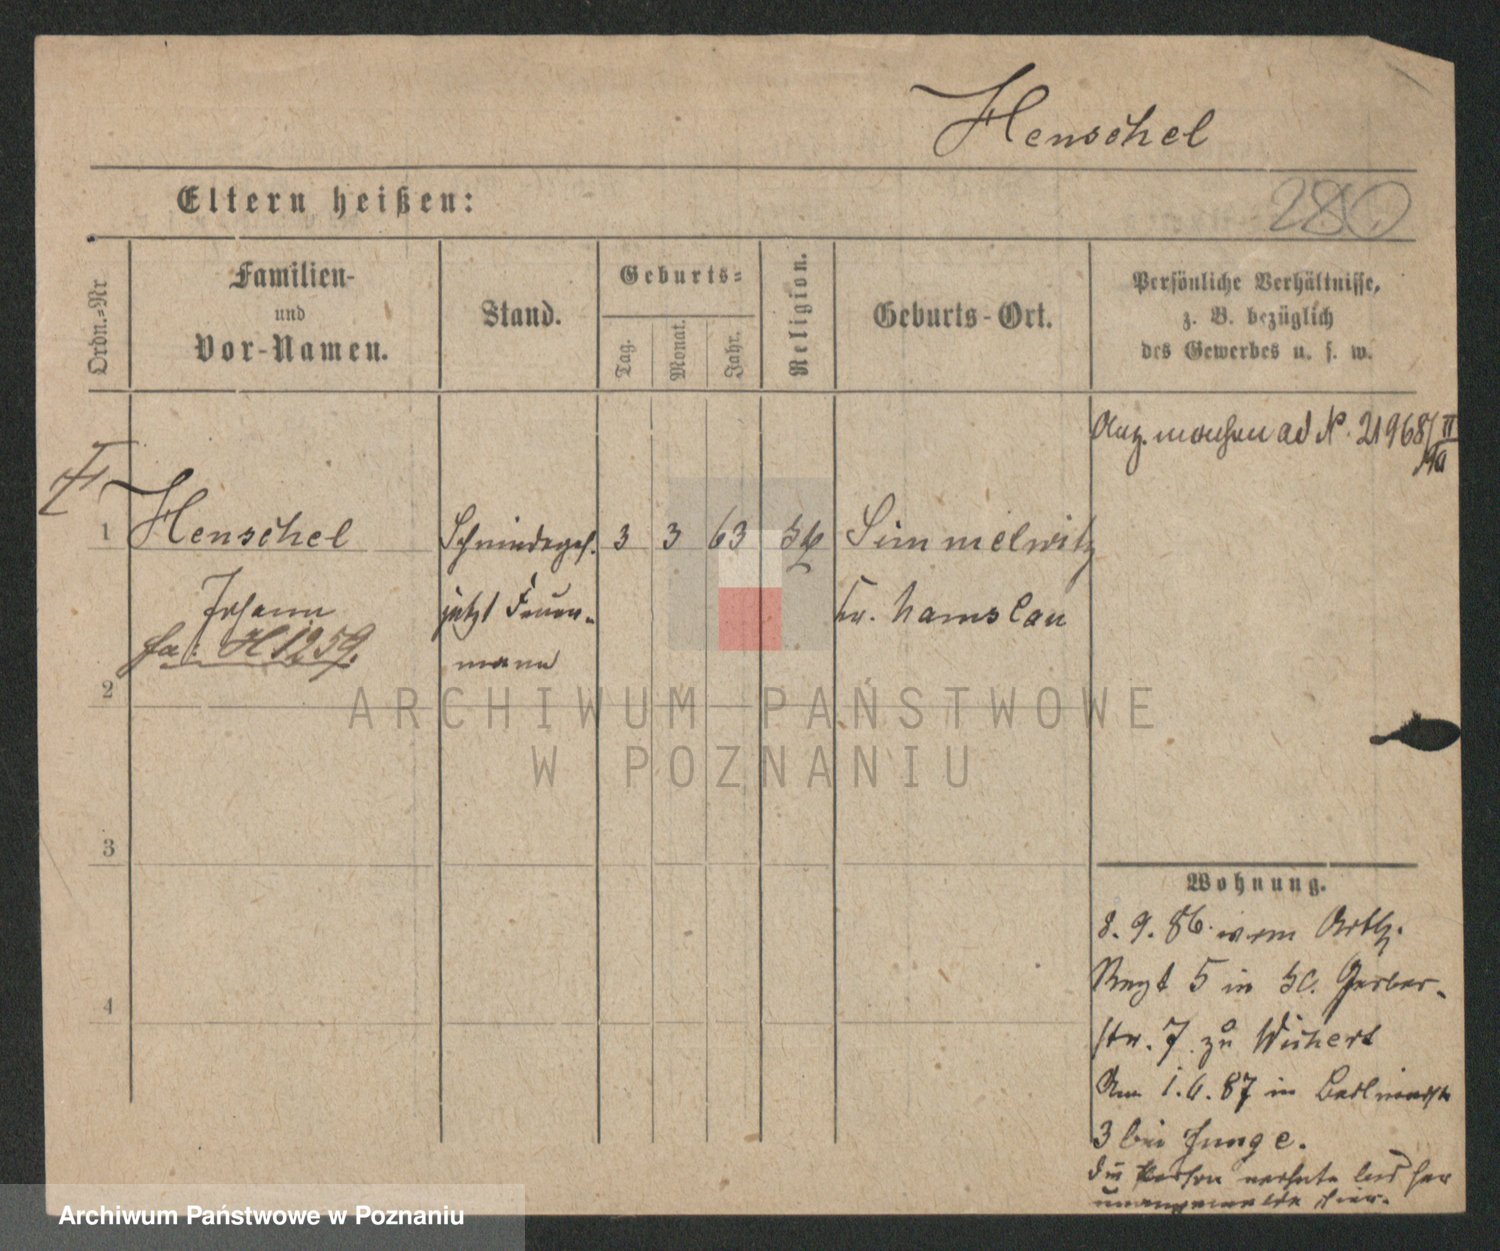 Henschel
Eltern heißen:
280
Ordn.-Nr
Familien-
und
Vor-Namen.
Stand.
Geburts-
Tag.
Monat.
Jahr.
Religion.
Geburts-Ort.
Persönliche Verhältnisse,
z. B. bezüglich
des Gewerbes u. s. w.
ad N. 21968/II
1 Henschel Schmiedeges. 3 3 63 Simmelwitz
Johann jetzt Feuer- Kr. Namslau
fa: H 1259. mann
2
3
4
ARCHIWUM PAŃSTWOWE
W POZNANIU
Wohnung.
8. 9. 86 vom Artl.
Regt 5 in Gerber-
str. 7 zu Wichert
Am 1. 6. 87 in
3 bei Junge.
Die Person
hier.
Archiwum Państwowe w Poznaniu